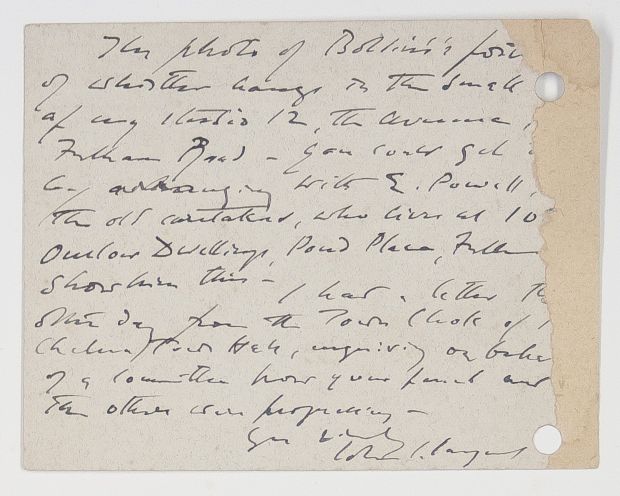 The photo of Boldini's
of Whistler hangs in the small
of my studio 12, the Avenue,
Fulham Road – you could get
by arranging with E. Powell,
the old caretaker, who lives at 10
Onslow Dwellings, Pond Place, Fulham
Show him this –
I had a letter the
other day from the Town Clerk of
Chelsea, Town Hall, inquiring on behalf
of a Committee how your panel and
the others were progressing –
Yrs
John S. Sargent